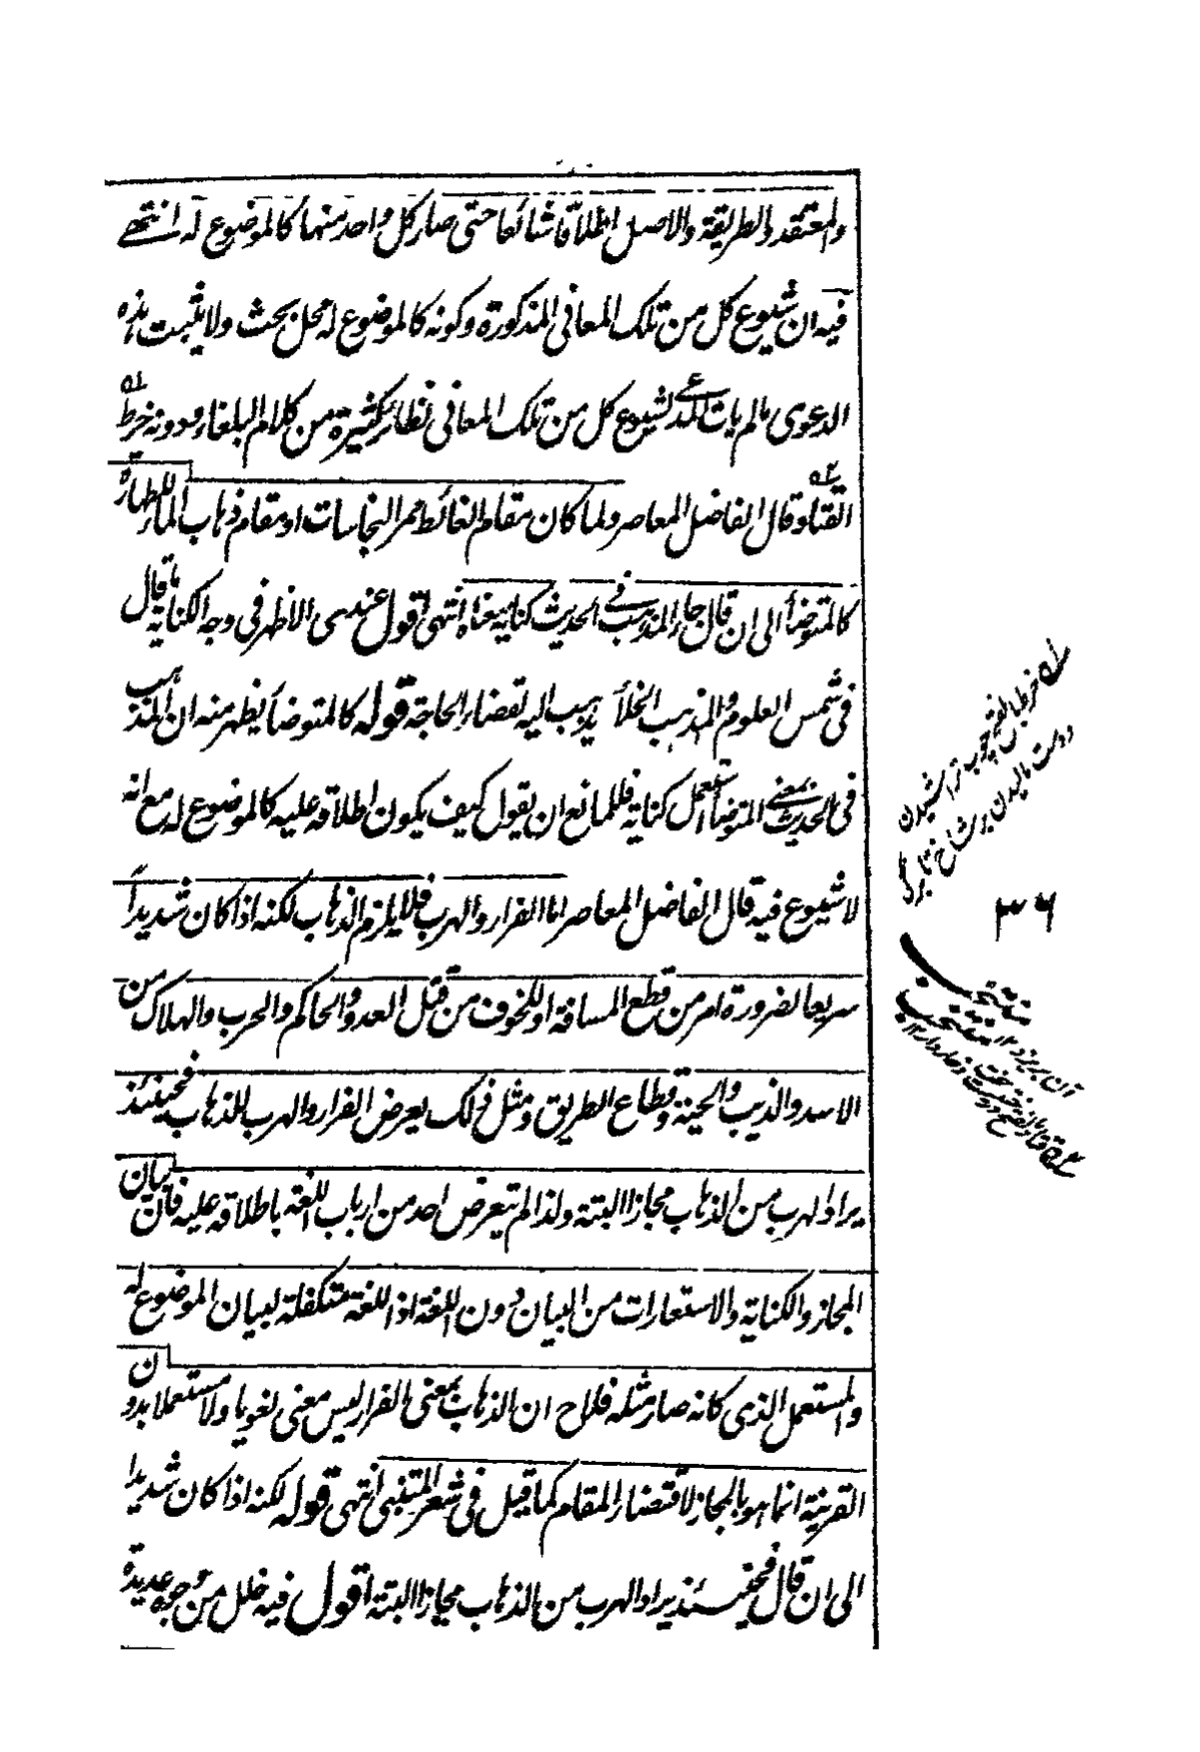 والمعتقد والطريقة والاصل اطلاقا شائعا حتى صار كل واحد منها كالموضوع له انتهے
فيه ان شيوع كل من تلك المعانى المذكورة وكونه كالموضوع له محل بحث ولا يثبت هذه
الدعوى مالم يات المدعے لشيوع كل من تلك المعانى نظائر كثيرة من كلام البلغاء ودونه خرط
القتاد وقال الفاضل المعاصر ولما كان مقام الغائط ممر النجاسات او مقام ذهاب الماء للطهارة
كالمتوضأ الى ان قال جاء المذهب فے الحديث كناية بمعناه انتهى اقول عندى الاظهر فى وجه الكناية ما قال
فى شمس العلوم والمذهب الخلأ يذهب اليه لقضاء الحاجة قوله كالمتوضأ يظهر منه ان المذهب
فى الحديث بمعنے المتوضأ استعمل كناية فللمانع ان يقول كيف يكون اطلاقه عليه كالموضوع له مع انه
لا شيوع فيه قال الفاضل المعاصر اما الفرار والهرب فلا يلزم الذهاب لكنه اذا كان شديدا
سريعا لضرورة امر من قطع المسافة او للخوف من قبل العدو والحاكم والحرب والهلاك من
الاسد والذيب والحية وقطاع الطريق ومثل ذلك يعرض الفرار والهرب للذهاب فحينئذ
يراد الهرب من الذهاب مجازا البتة ولذا لم يتعرض احد من ارباب اللغة باطلاقه عليه فان بيان
المجاز والكناية والاستعارات من البيان دون اللغة اذ اللغة متكفلة لبيان الموضوع له
والمستعمل الذى كانه صار مثله فلاح ان الذهاب بمعنى الفرار ليس معنى لغويا ولا مستعملا بدون
القرينة انما هو بالمجاز لاقتضاء المقام كما قيل فى شعر المتنبى انتهى قوله لكنه اذا كان شديدا
الى ان قال فحينئذ يراد الهرب من الذهاب مجازا البتة اقول فيه خلل من وجوه عديدة
سلہ خرط بالفتح چوب تراشيدن
ودست ماليدن بر شاخ تا برگ
۳۶
آن بريزد ۱۲ منتخب